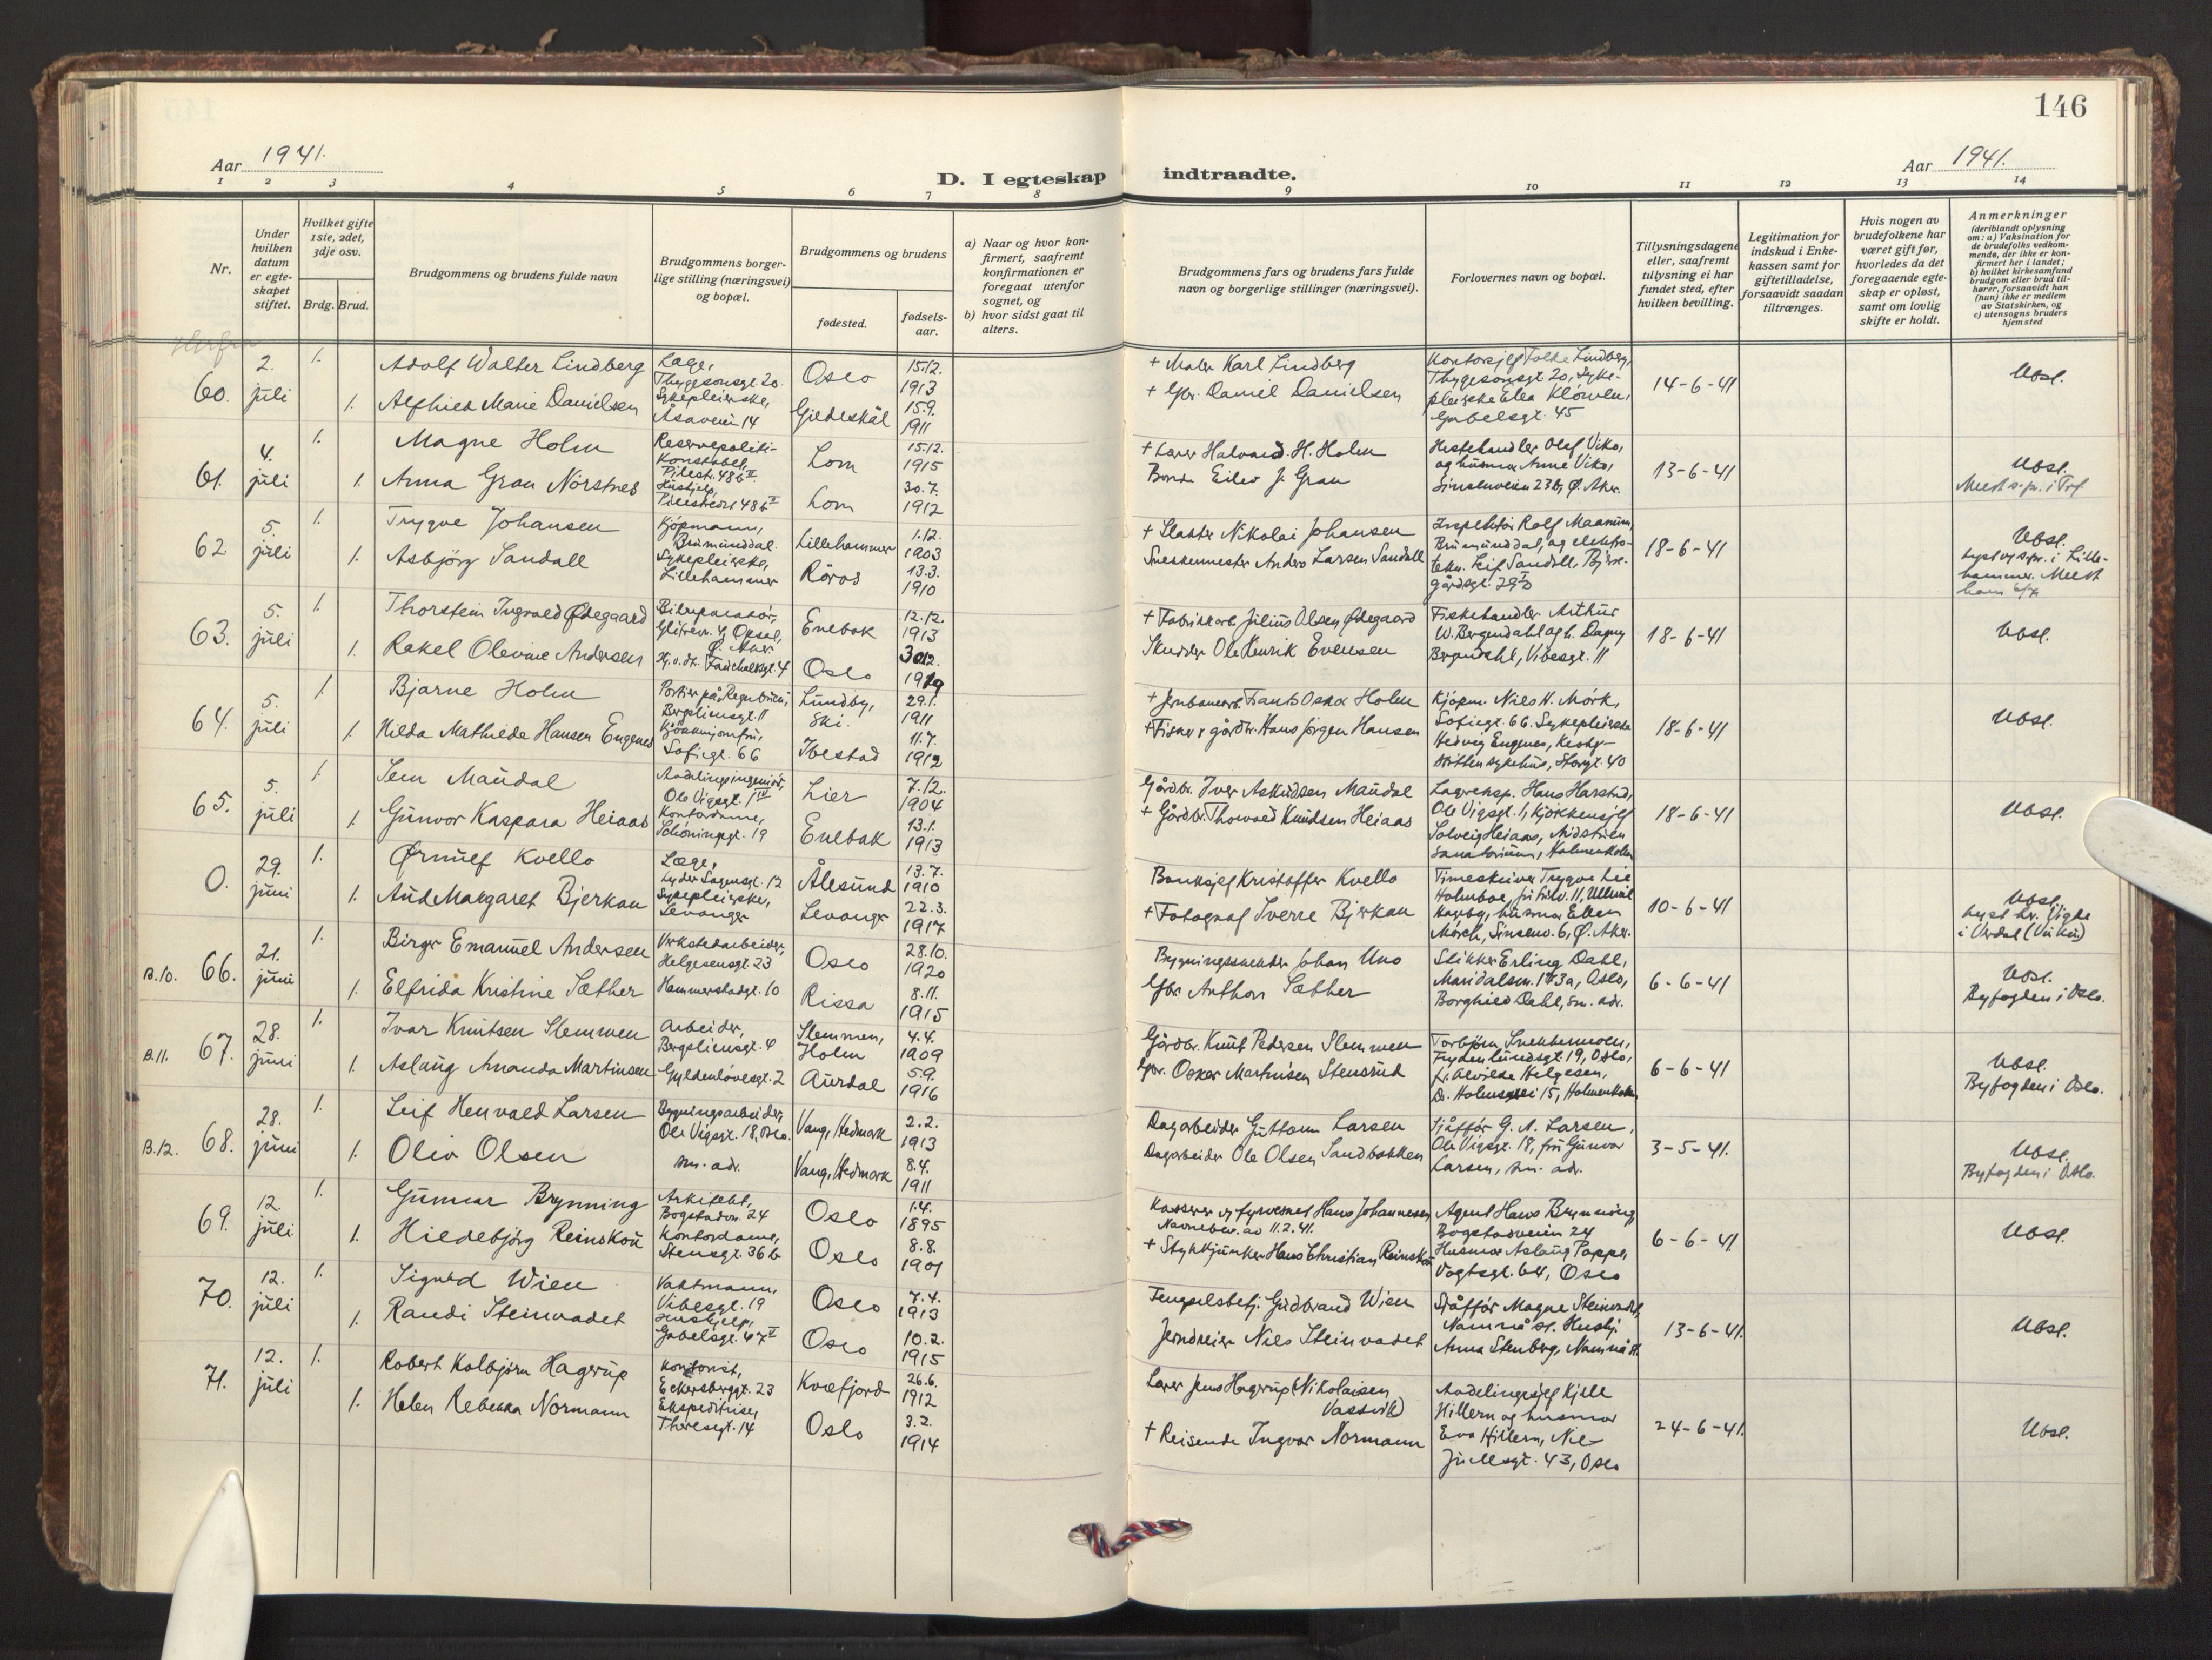 146
Aar 1941.
D. I egteskap indtraadte.
Aar 1941.
1 2 3 4 5 6 7 8 9 10 11 12 13 14
Nr.
Under hvilken datum er egteskapet stiftet.
Hvilket gifte 1ste, 2det, 3dje osv.
Brdg. Brud.
Brudgommens og brudens fulde navn
Brudgommens borgerlige stilling (næringsvei) og bopæl.
Brudgommens og brudens
fødested.
fødselsaar.
a) Naar og hvor konfirmert, saafremt konfirmationen er foregaat utenfor sognet, og
b) hvor sidst gaat til alters.
Brudgommens fars og brudens fars fulde navn og borgerlige stillinger (næringsvei).
Forlovernes navn og bopæl.
Tillysningsdagene eller, saafremt tillysning ei har fundet sted, efter hvilken bevilling.
Legitimation for indskud i Enkekassen samt for giftetilladelse, forsaavidt saadan tiltrænges.
Hvis nogen av brudefolkene har været gift før, hvorledes da det foregaaende egteskap er opløst, samt om lovlig skifte er holdt.
Anmerkninger
(deriblandt oplysning om: a) Vaksination for de brudefolks vedkommende, der ikke er konfirmert her i landet; b) hvilket kirkesamfund brudgom eller brud tilhører, forsaavidt han (hun) ikke er medlem av Statskirken, og c) utensogns bruders hjemsted
60. 2. juli 1. Adolf Walter Lindberg Læge, Thygesonsgt. 20. Oslo 15.12. 1913 + Maler Karl Lindberg
1. Alfhild Marie Danielsen Sykepleierske, Åsaveien 14 Gildeskål 15.9. 1911 + Gbr. Daniel Danielsen
Kontorsjef Lindberg, Thygesonsgt. 20, sykepleierske Elea Gabelsgt. 45 14-6-41 Ubsl.
61. 4. juli 1. Magne Holm Reservepoliti-konstabel, Pilestr. 48b II Lom 15.12. 1915 + Lærer Halvard H. Holm
1. Anna Grau Nørstnes Hushjelp, Pilestredet 48b II Lom 30.7. 1912 Bonde Eilev J. Grau
Hestehandler Olef Viko, og husmor Anne Viko, Sinsenveien 23b, Ø. Aker. 13-6-41 Ubsl.
62. 5. juli 1. Trygve Johansen Kjøpmann, Brumunddal. Lillehammer 1.12. 1903 + Slakter Nikolai Johansen
1. Asbjørg Sandall Sykepleierske, Lillehammer Røros 13.3. 1910 Snekkermester Anders Larsen Sandall
Inspektør Rolf Maanum, Brumunddal, og Leif Sandall, 18-6-41 Ubsl.
63. 5. juli 1. Thorstein Ingvald Ødegaard Bilreparatør, Glitrev. 4, Opsal, Ø. Aker Enebak 12.12. 1913 + Fabrikkarb. Julius Olsen Ødegaard
1. Rakel Olevine Andersen Oslo 30.12. 1919 Skredder Ole Henrik Evensen
Fiskehandler Arthur W. Bergendahl og h. Dagny Bergendahl, Vibesgt. 11 18-6-41 Ubsl.
64. 5. juli 1. Bjarne Holm Portier på Regnbuen, Bergsliensgt. 11 Lundby, Ski. 29.1. 1911 + Jernbanearb. Frants Oskar Holm
1. Hilda Mathilde Hansen Engenes Kjøkkenjomfru, Sofiegt. 66 Ibestad 11.7. 1912 + Fisker & gårdbr. Hans Jørgen Hansen
Kjøpm. Niels H. Mørk, Sofiegt. 66. Sykepleierske Hedvig Engenes, sykehus, Storgt. 40 18-6-41 Ubsl.
65. 5. juli 1. Sem Maudal Avdelingsingeniør, Ole Vigsgt. 1 IV Lier 7.12. 1904 Gårdbr. Iver Askildsen Maudal
1. Gunvor Kaspara Heiaas Kontordame, Schøningsgt. 19 Enebak 13.1. 1913 + Gårdbr. Thorvald Knudsen Heiaas
Lagereksp. Hans Harstad, Ole Vigsgt. 1, kjøkkensjef Solveig Heiaas, Midtstuen sanatorium, Holmenkolm 18-6-41 Ubsl.
0. 29. juni 1. Ørnulf Kvello Læge, Lyder Sagensgt. 12 Ålesund 13.7. 1910 Banksjef Kristoffer Kvello
1. Aud Margaret Bjerkan Sykepleierske, Levanger Levanger 22.3. 1917 + Fotograf Sverre Bjerkan
Timeskriver Trygve Lie Holmboe, 11, Ullevål Haveby, husmor Ellen Mørch, Sinsenv. 6, Ø. Aker. 10-6-41 Ubsl. i Verdal (Vuku)
B.10. 66. 21. juni 1. Birger Emanuel Andersen Verkstedarbeider, Helgesensgt. 23 Oslo 28.10. 1920 Bygningssnekker Johan Uno
1. Elfrida Kristine Sæther Hammerstadgt. 10 Rissa 8.11. 1915 Gbr. Anthon Sæther
Stikker Erling Dahl, Maridalsvn. 113a, Oslo, Borghild Dahl, sm. adr. 6-6-41 Ubsl. Byfogden i Oslo.
B.11. 67. 28. juni 1. Ivar Knutsen Slemmen Arbeider, Bergsliensgt. 4 Slemmen, Holm 4.4. 1909 Gårdbr. Knut Pedersen Slemmen
1. Aslaug Amanda Martinsen Gyldenløvesgt. 2 Aurdal 5.9. 1916 Gbr. Oskar Martinsen Stensrud
Torbjørn Snekkermoen, Frydenlundsgt. 19, Oslo, fr. Alvilde Helgesen, Dr. Holmsvei 15, Holmenkolm 6-6-41 Ubsl. Byfogden i Oslo.
B.12. 68. 28. juni 1. Leif Henvald Larsen Bygningsarbeider, Ole Vigsgt. 18, Oslo. Vang, Hedmark 2.2. 1913 Dagarbeider Guttorm Larsen
1. Oliv Olsen sm. adr. Vang, Hedmark 8.4. 1911 Dagarbeider Ole Olsen Sandbakken
Sjåffør G. A. Larsen, Ole Vigsgt. 18, fru Gunvor Larsen, sm. adr. 3-5-41. Ubsl. Byfogden i Oslo.
69. 12. juli 1. Gunnar Brynning Arkitekt, Bogstadvn. 24 Oslo 1.4. 1895 Kasserer v. fyrvesnet Hans Johannesen Navnebev. av 11.2.41.
1. Hildebjørg Reinskou Kontordame, Stensgt. 36b Oslo 8.8. 1901 + Stykkjunker Hans Christian Reinskou
Agent Hans Brynning, Bogstadveien 24 Husmor Aslaug Poppe, Vogtsgt. 64, Oslo 6-6-41. Ubsl.
70. 12. juli 1. Sigurd Wien Vaktmann, Vibesgt. 19 Oslo 7.4. 1913 Fengselsbetj. Gudbrand Wien
1. Randi Steinvadet Hushjelp, Gabelsgt. 47 II Oslo 10.2. 1915 Jerndreier Nils Steinvadet
Sjåffør Magne Steinvadet, Namnå st. Hushj. Anna Stenberg, Namnå st. 13-6-41. Ubsl.
71. 12. juli 1. Robert Kolbjørn Hagerup Kontorist, Eckersberggt. 23 Kvæfjord 26.6. 1912 Lærer Jens Hagerup (Nikolaisen Vassvik)
1. Helen Rebekka Normann Ekspeditrise, Theresegt. 14 Oslo 3.2. 1914 + Reisende Ingvar Normann
Avdelingssjef Kjell Hillern og husmor Eva Hillern, Nils Juelsgt. 43, Oslo 24-6-41. Ubsl.